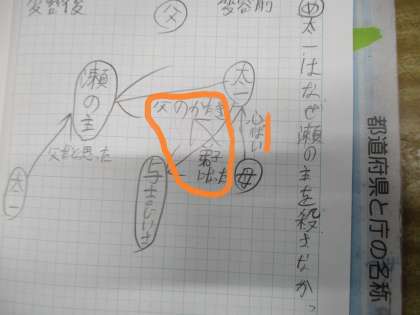 変容後
父
変容前
㊥太一はなぜ瀬の主を殺さなか
瀬の主
太一
父のかたき
心ぱい
弟子
父だと思った
与吉じいさ
母
太一
都道府県と庁の名称